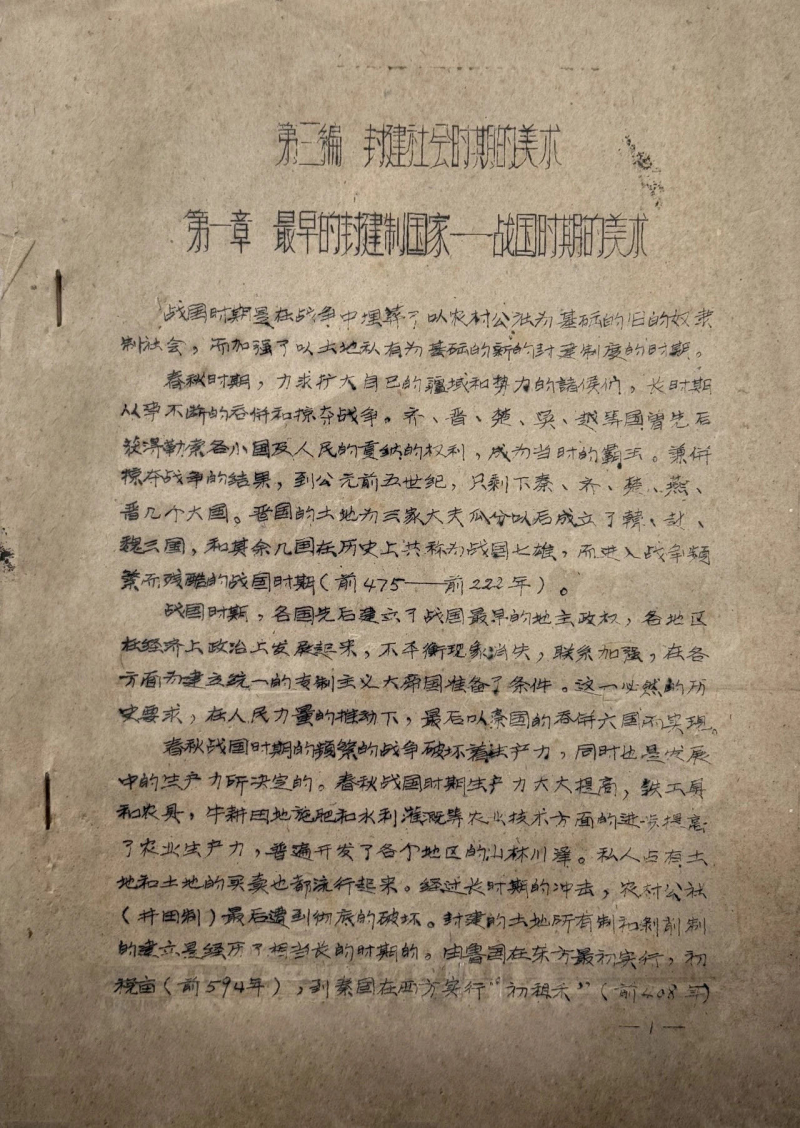 第三编 封建社会时期的美术
第一章 最早的封建制国家——战国时期的美术
战国时期是在战争中埋葬了以农村公社为基础的旧的奴隶
制社会，而加强了以土地私有为基础的新的封建制度的时期。
春秋时期，力求扩大自己的疆域和势力的諸侯们，长时期
从事不断的吞併和掠夺战争。齐、晋、楚、吳、越等国曾先后
获得勒索各小国及人民的贡纳的权利，成为当时的霸王。兼併
掠夺战争的结果，到公元前五世纪，只剩下秦、齐、楚、燕、
晋几个大国。晋国的土地为三家大夫瓜分以后成立了韓、赵、
魏三国，和其余几国在历史上共称为战国七雄，而进入战争频
繁而残酷的战国时期（前475——前222年）。
战国时期，各国先后建立了战国最早的地主政权，各地区
在经济上政治上发展起来，不平衡现象消失，联系加强，在各
方面为建立统一的专制主义大帝国准备了条件。这一必然的历
史要求，在人民力量的推动下，最后以秦国的吞併六国而实现。
春秋战国时期的频繁的战争破坏着生产力，同时也是发展
中的生产力所决定的。春秋战国时期生产力大大提高，鉄工具
和农具，牛耕田地施肥和水利灌溉等农业技术方面的进步提高
了农业生产力，普遍开发了各个地区的山林川泽。私人占有土
地和土地的买卖也都流行起来。经过长时期的冲击，农村公社
（井田制）最后遭到彻底的破坏。封建的土地所有制和剥削制
的建立是经历了相当长的时期的。由魯国在东方最初实行，初
税亩（前594年），到秦国在西方实行“初租禾”（前408年）
—1—